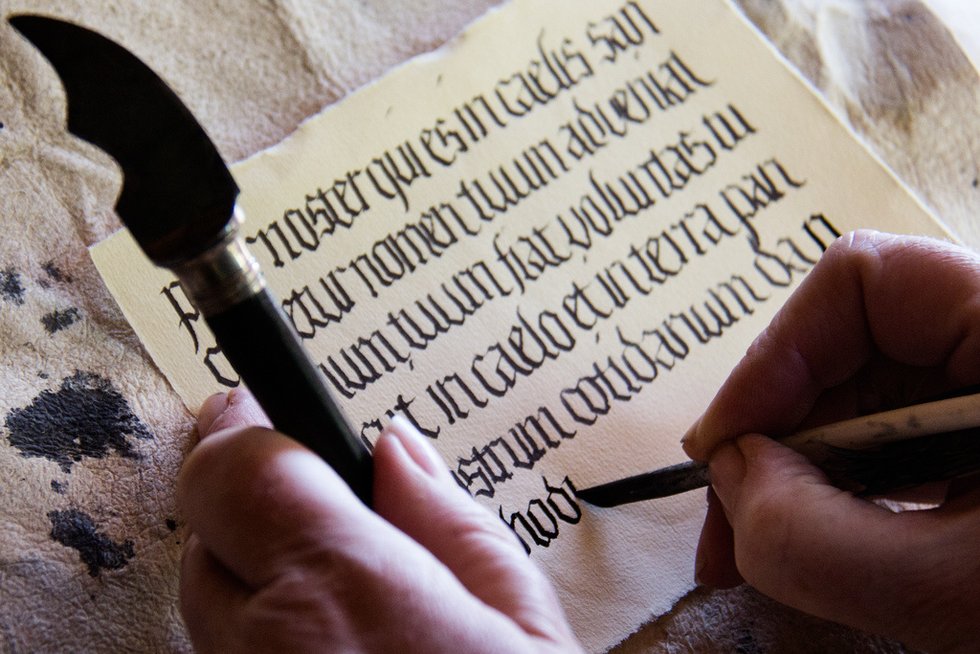 noster qui es in caelis san
nomen tuum adveniat
tuum fiat voluntas tu
in caelo et in terra pan
strum cotidanum da n
hodi